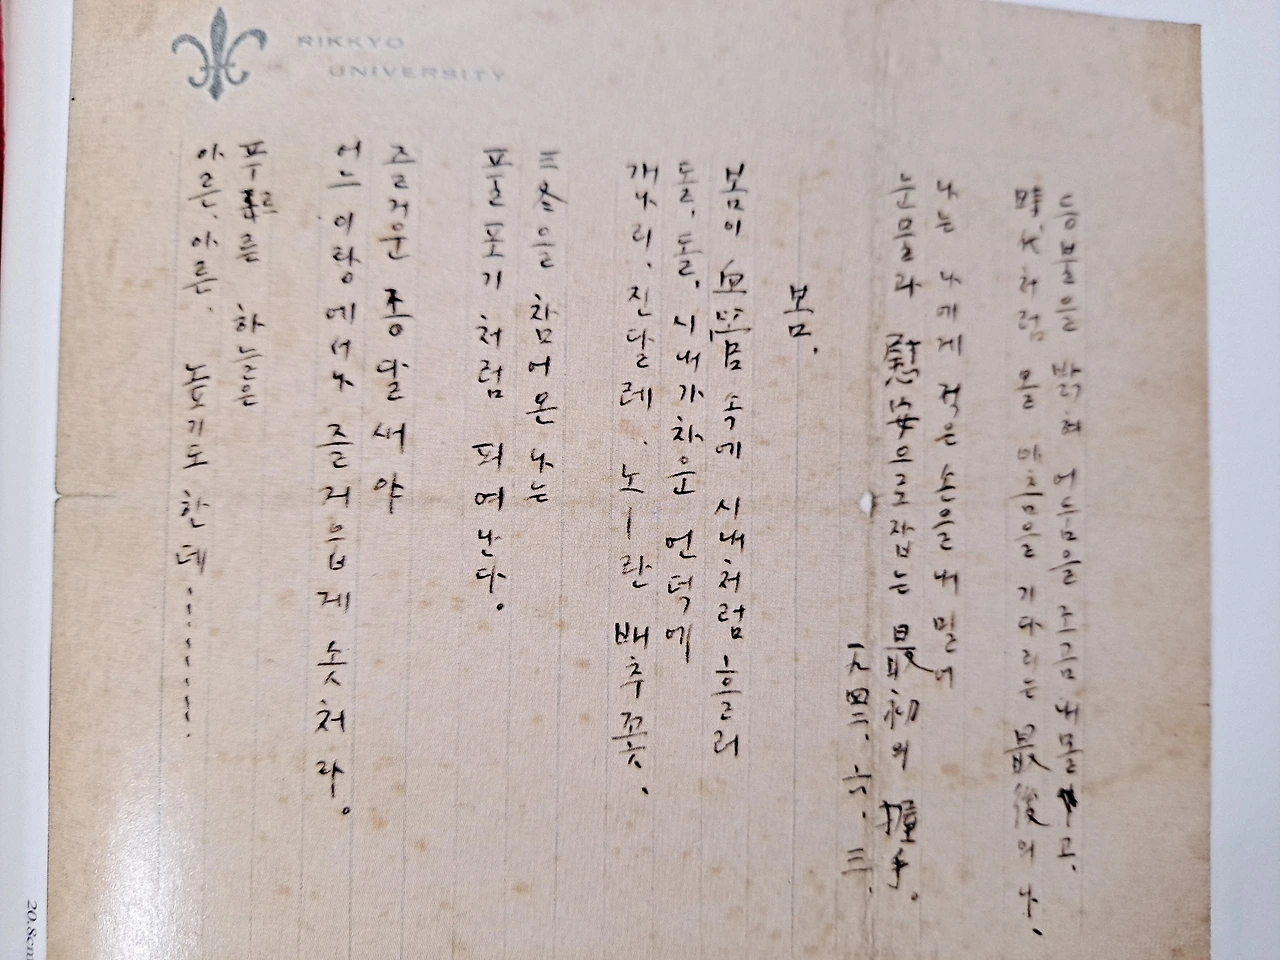 등불을 밝혀 어둠을 조곰 내몰고,
時代처럼 올 아츰을 기다리는 最後의 나,
나는 나에게 적은 손을 내밀어
눈물과 慰安으로 잡는 最初의 握手.
一九四二、六、三、
봄.
봄이 血管 속에 시내처럼 흘러
돌, 돌, 시내가차운 언덕에
개나리, 진달레, 노—란 배추꽃,
三冬을 참어온 나는
풀포기 처럼 피여난다.
즐거운 종달새야
어느 이랑에서나 즐거웁게 솟처라.
푸르른 하늘은
아른, 아른, 높기도 한데………
RIKKYO
UNIVERSITY